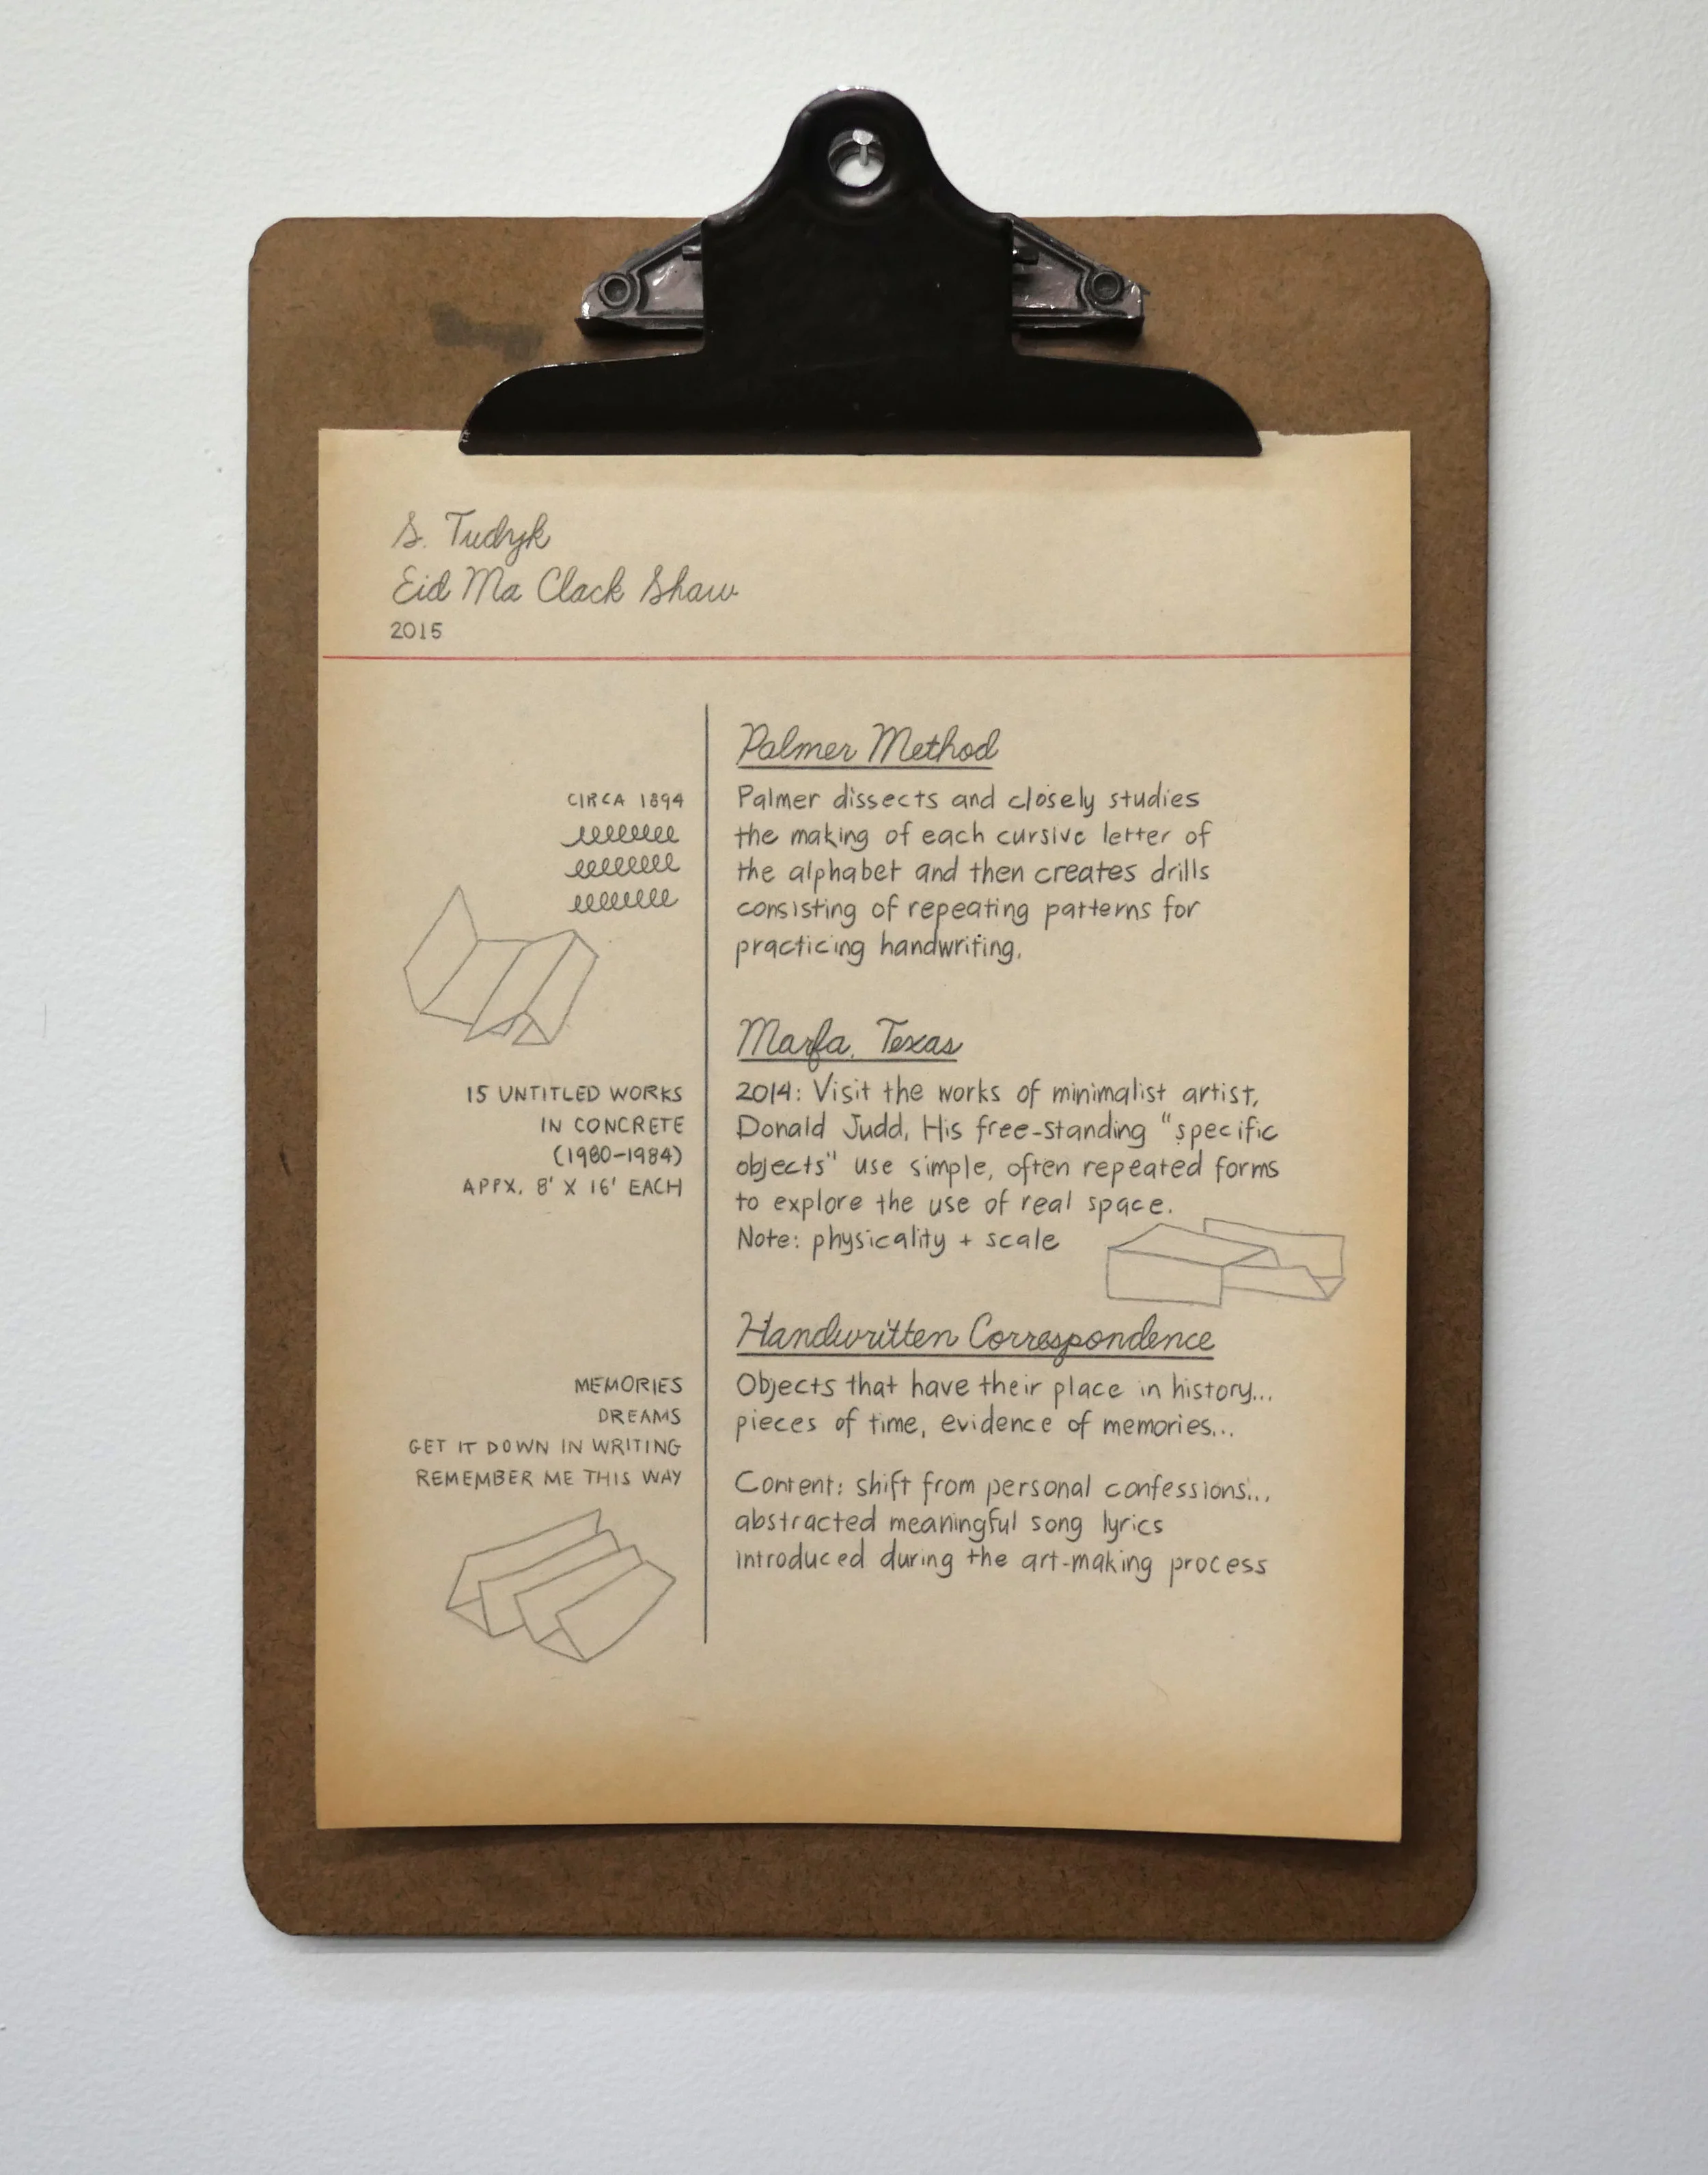 S. Tudyk
Eid Ma Clack Shaw
2015
Palmer Method
CIRCA 1894
Palmer dissects and closely studies
the making of each cursive letter of
the alphabet and then creates drills
consisting of repeating patterns for
practicing handwriting.
Marfa, Texas
15 UNTITLED WORKS
IN CONCRETE
(1980-1984)
APPX. 8' X 16' EACH
2014: Visit the works of minimalist artist,
Donald Judd. His free-standing "specific
objects" use simple, often repeated forms
to explore the use of real space.
Note: physicality + scale
Handwritten Correspondence
MEMORIES
DREAMS
GET IT DOWN IN WRITING
REMEMBER ME THIS WAY
Objects that have their place in history...
pieces of time, evidence of memories...
Content: shift from personal confessions...
abstracted meaningful song lyrics
introduced during the art-making process